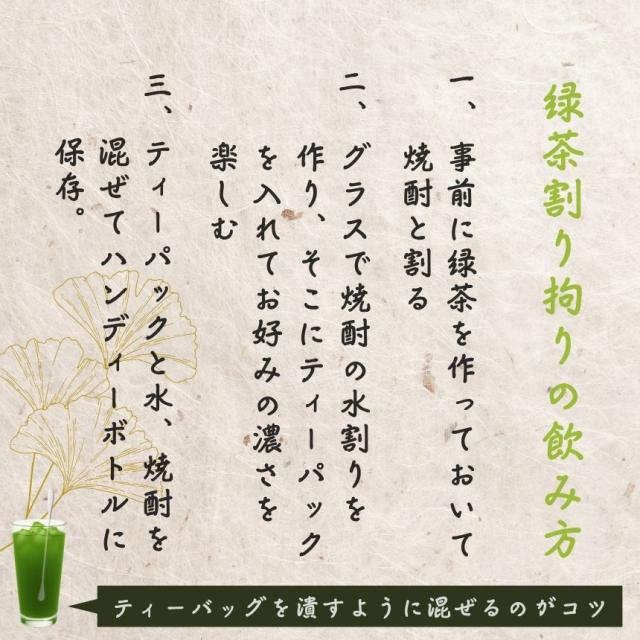 緑茶割り拘りの飲み方
一、事前に緑茶を作っておいて
焼酎と割る
二、グラスで焼酎の水割りを
作り、そこにティーパック
を入れてお好みの濃さを
楽しむ
三、ティーパックと水、焼酎を
混ぜてハンディーボトルに
保存。
ティーバッグを潰すように混ぜるのがコツ